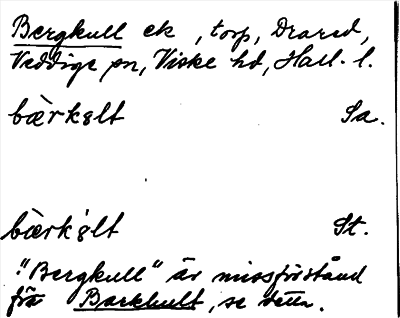 Bergkull ek, torp, Drared,
Veddige sn, Viske hd, Hall. l.
bærkɜlt Sa.
bærkɜlt St.
"Bergkull" är missförstånd
för Backhult, se detta.